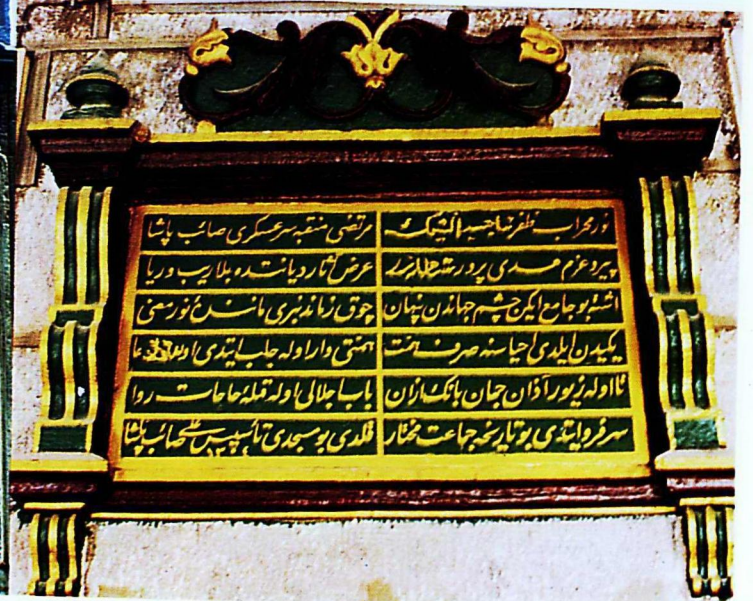 نور محراب ظفر صاحب
مرتضی منقبه سر عسکری صائب پاشا
پیرو عزم هدی پرور
عرض آثار دیانتده بلا ریب و ریا
اشته بو جامع ایکن چشم جهاندن پنهان
چوق زماندنبری مانند نور معنی
یکیدن ایلدی احیاسنه صرف همت
همتی وار اوله جلب ایتدی
تا اوله زیور آذان جهان بانک اذان
باب اجلالی اوله قبلهٔ حاجات روا
سر فرو ایتدی بو تاریخه جماعت مختار
قلدی بو مسجدی تأسیس صائب پاشا